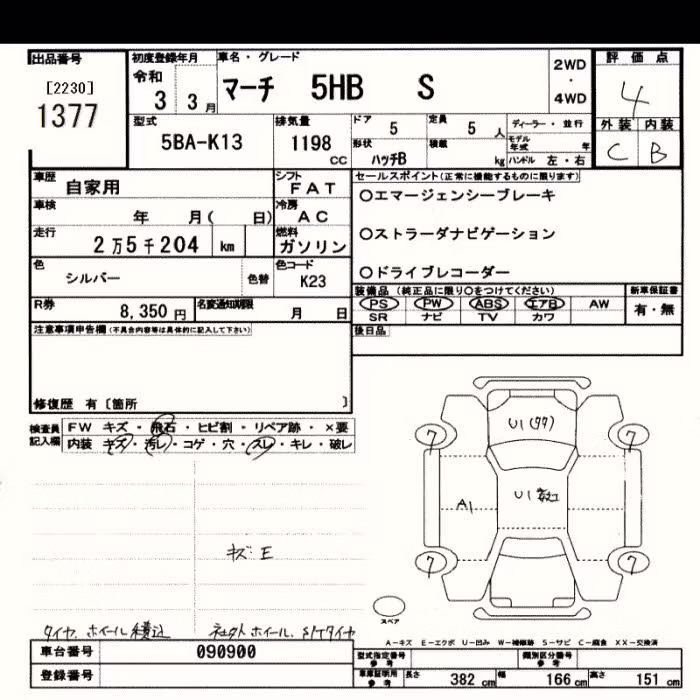 出品番号
[2230]
1377
初度登録年月
令和
3 3月
車名・グレード
マーチ 5HB S
2WD
・
4WD
評価点
4
外装 内装
C B
型式
5BA-K13
排気量
1198
CC
ドア 5
定員 5 人
形状 ハッチB
積載 kg
ディーラー・並行
モデル年式 年
ハンドル 左・右
車歴 自家用
シフト FAT
車検 年 月( 日)
冷房 AC
走行 2万5千204 km
燃料 ガソリン
色 シルバー
色替
色コード K23
R券 8,350 円
名変通知期限 月 日
セールスポイント(正常に機能するものに限ります)
○エマージェンシーブレーキ
○ストラーダナビゲーション
○ドライブレコーダー
装備品 (純正品に限り○をつけてください)
PS PW ABS エアB AW
SR ナビ TV カワ
新車保証書
有・無
後日品
注意事項申告欄(不具合内容等は具体的に記入して下さい)
修復歴 有〔箇所 〕
検査員記入欄
FW キズ・飛石・ヒビ割・リペア跡・×要
内装 キズ・汚レ・コゲ・穴・スレ・キレ・破レ
U1
7 7
A1
U1
7 7
キズ E
スペア
タイヤ、ホイール積込 社外ホイール、
A-キズ E-エクボ U-凹み W-補修跡 S-サビ C-腐食 XX-交換済
車台番号 090900
登録番号
型式指定番号 参考
類別区分番号 参考
車庫証明用 参考 長さ 382 cm 幅 166 cm 高さ 151 cm